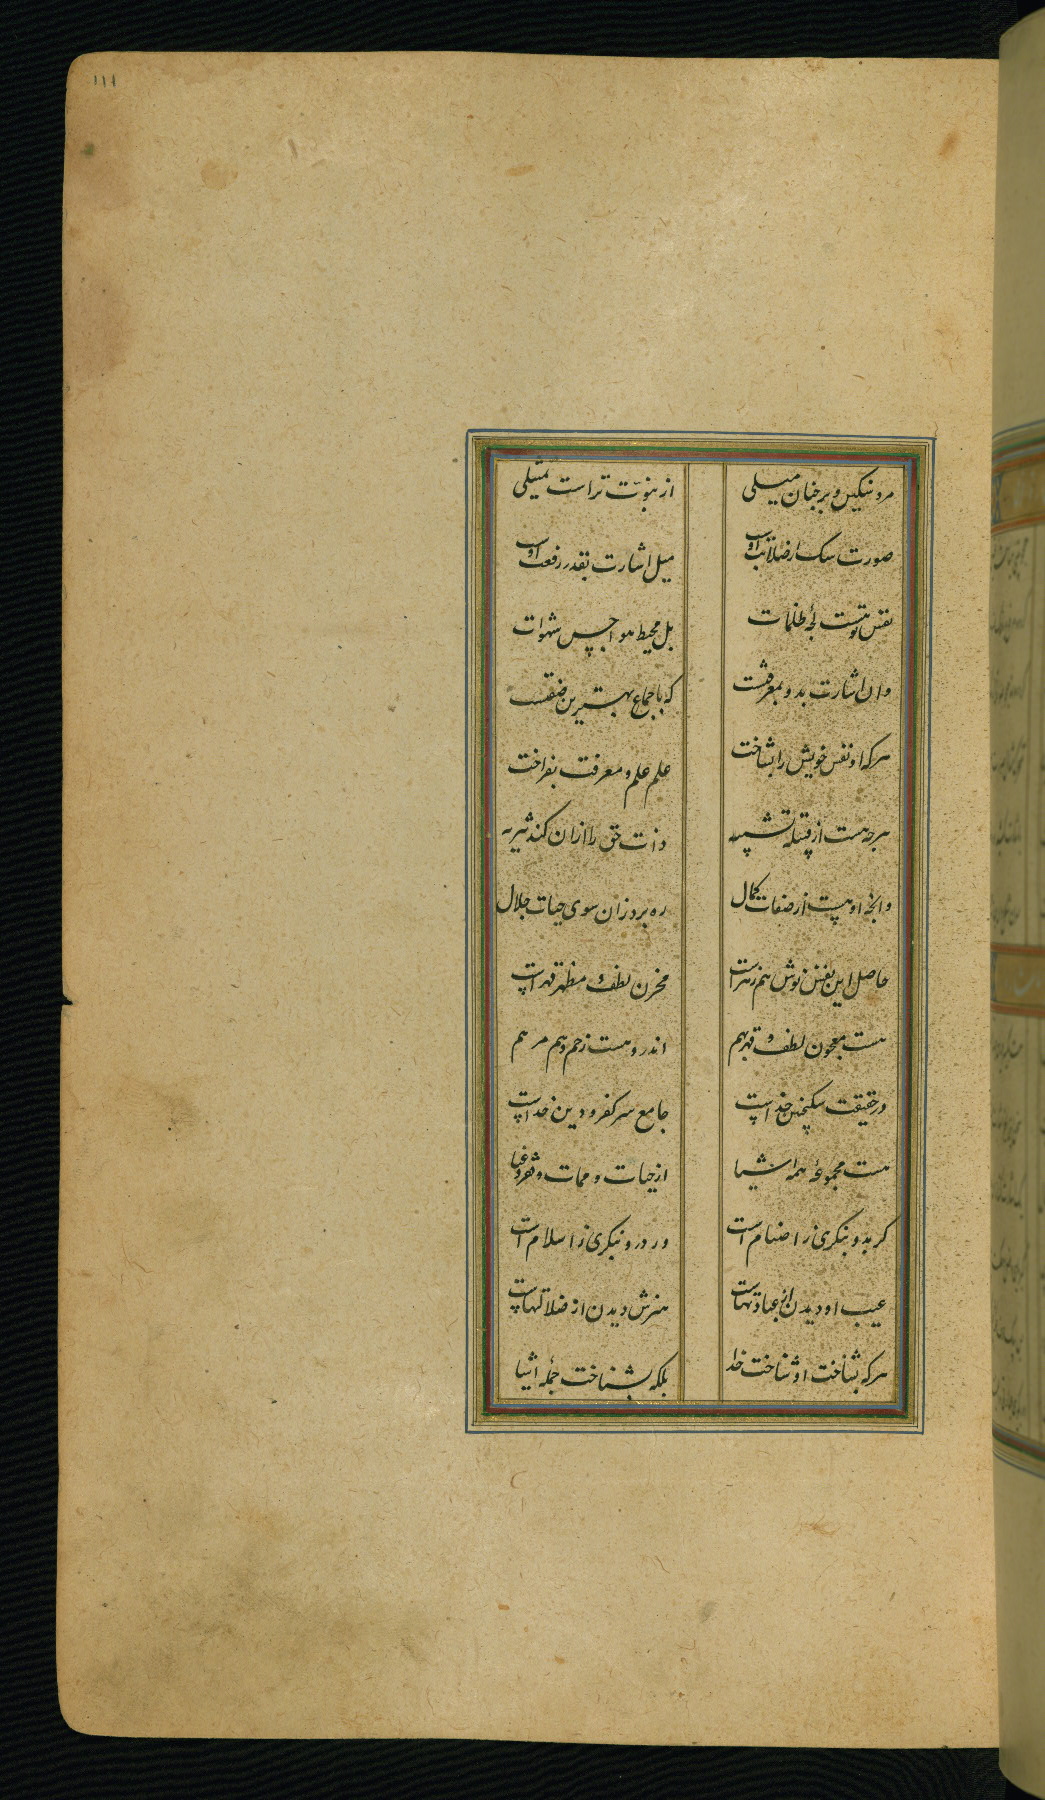 ۱۱۱
مرد نیکین و بر جنان میلی از بنوت تراست تمثیلی
صورت سنک ازضلابت اوست میل اشارت بقدر رفعت اوست
نفس تو هست لجهٔ ظلمات بل محیط هواجس شهوات
وان اشارت بدو بمعرفتست که باجماع بهترین صفتست
هرکه او نفس خویش را بشناخت علم علم و معرفت بفراخت
هرچه هست از قبیله تشبیه ذات حق را ازان کند تنزیه
وانچه او هست از صفات کمال ره برد زان سوی حیات جلال
حاصل این نفس نوش هم زهراست مخزن لطف و مظهر قهراست
هست معجون لطف و قهر بهم اندرو هست زخم و هم مرهم
در حقیقت سکنجبین خداست جامع سر کفر و دین خداست
هست مجموعهٔ همه اشیا از حیات و ممات و فقر و غنا
کر بدو بنکری ز اصنام است ور درو بنکری ز اسلام است
عیب او دیدن از عبادتهاست هنرش دیدن از ضلالتهاست
هرکه بشناخت او شناخت خدا بلکه بشناخت جمله اشیا